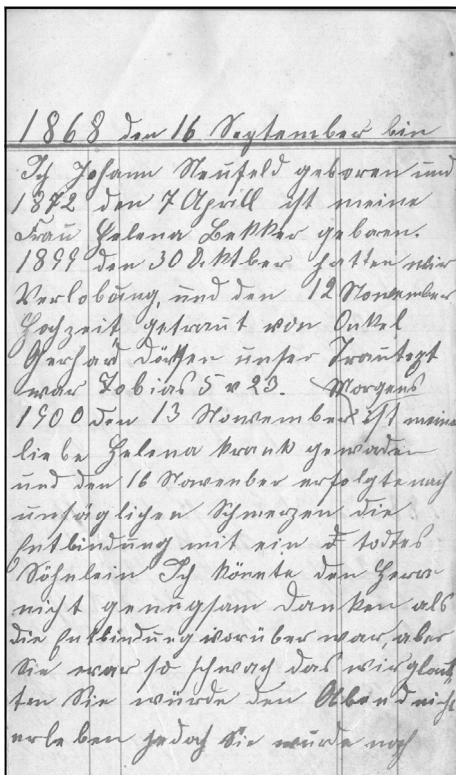 1868 den 16 September bin
Ich Johann Neufeld geboren und
1872 den 7 Aprill ist meine
Frau Helena Bekker geboren.
1899 den 30 Oktber hatten wir
Verlobung, und den 12 November
Hochzeit getraut von Onkel
Gerhard unser Trautext
war Tobias 5 v 23. Morgens
1900 den 13 November ist meine
liebe Helena krank gewaden
und den 16 November erfolgte nach
unsäglichen Schmerzen die
Entbindung mit ein todtes
Söhnlein Ich konnte den Herrn
nicht genugsam danken als
die Entbindung vorüber war, aber
Sie war so schwach das wir glaub
ten Sie würde den Abend nicht
erleben jedoch Sie wurde noch